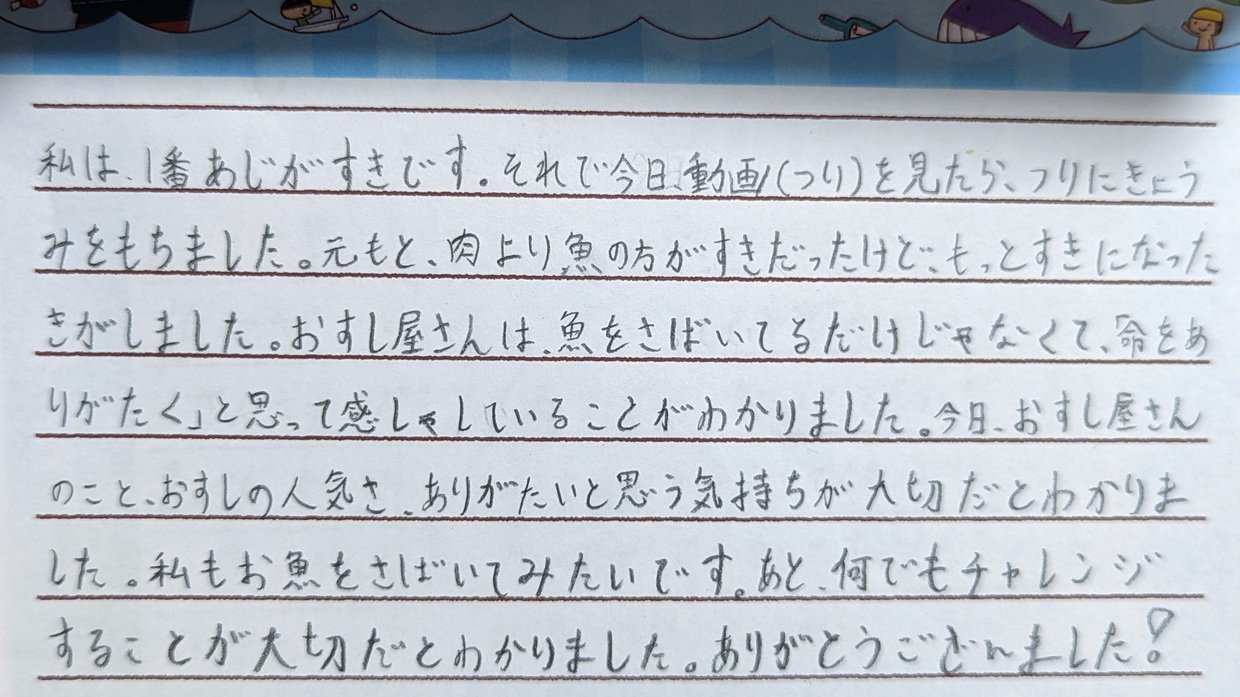 私は、1番あじがすきです。それで今日、動画(つり)を見たら、つりにきょう
みをもちました。元もと、肉より魚の方がすきだったけど、もっとすきになった
きがしました。おすし屋さんは、魚をさばいてるだけじゃなくて、「命をあ
りがたく」と思って感しゃしていることがわかりました。今日、おすし屋さん
のこと、おすしの人気さ、ありがたいと思う気持ちが大切だとわかりま
した。私もお魚をさばいてみたいです。あと、何でもチャレンジ
することが大切だとわかりました。ありがとうございました!